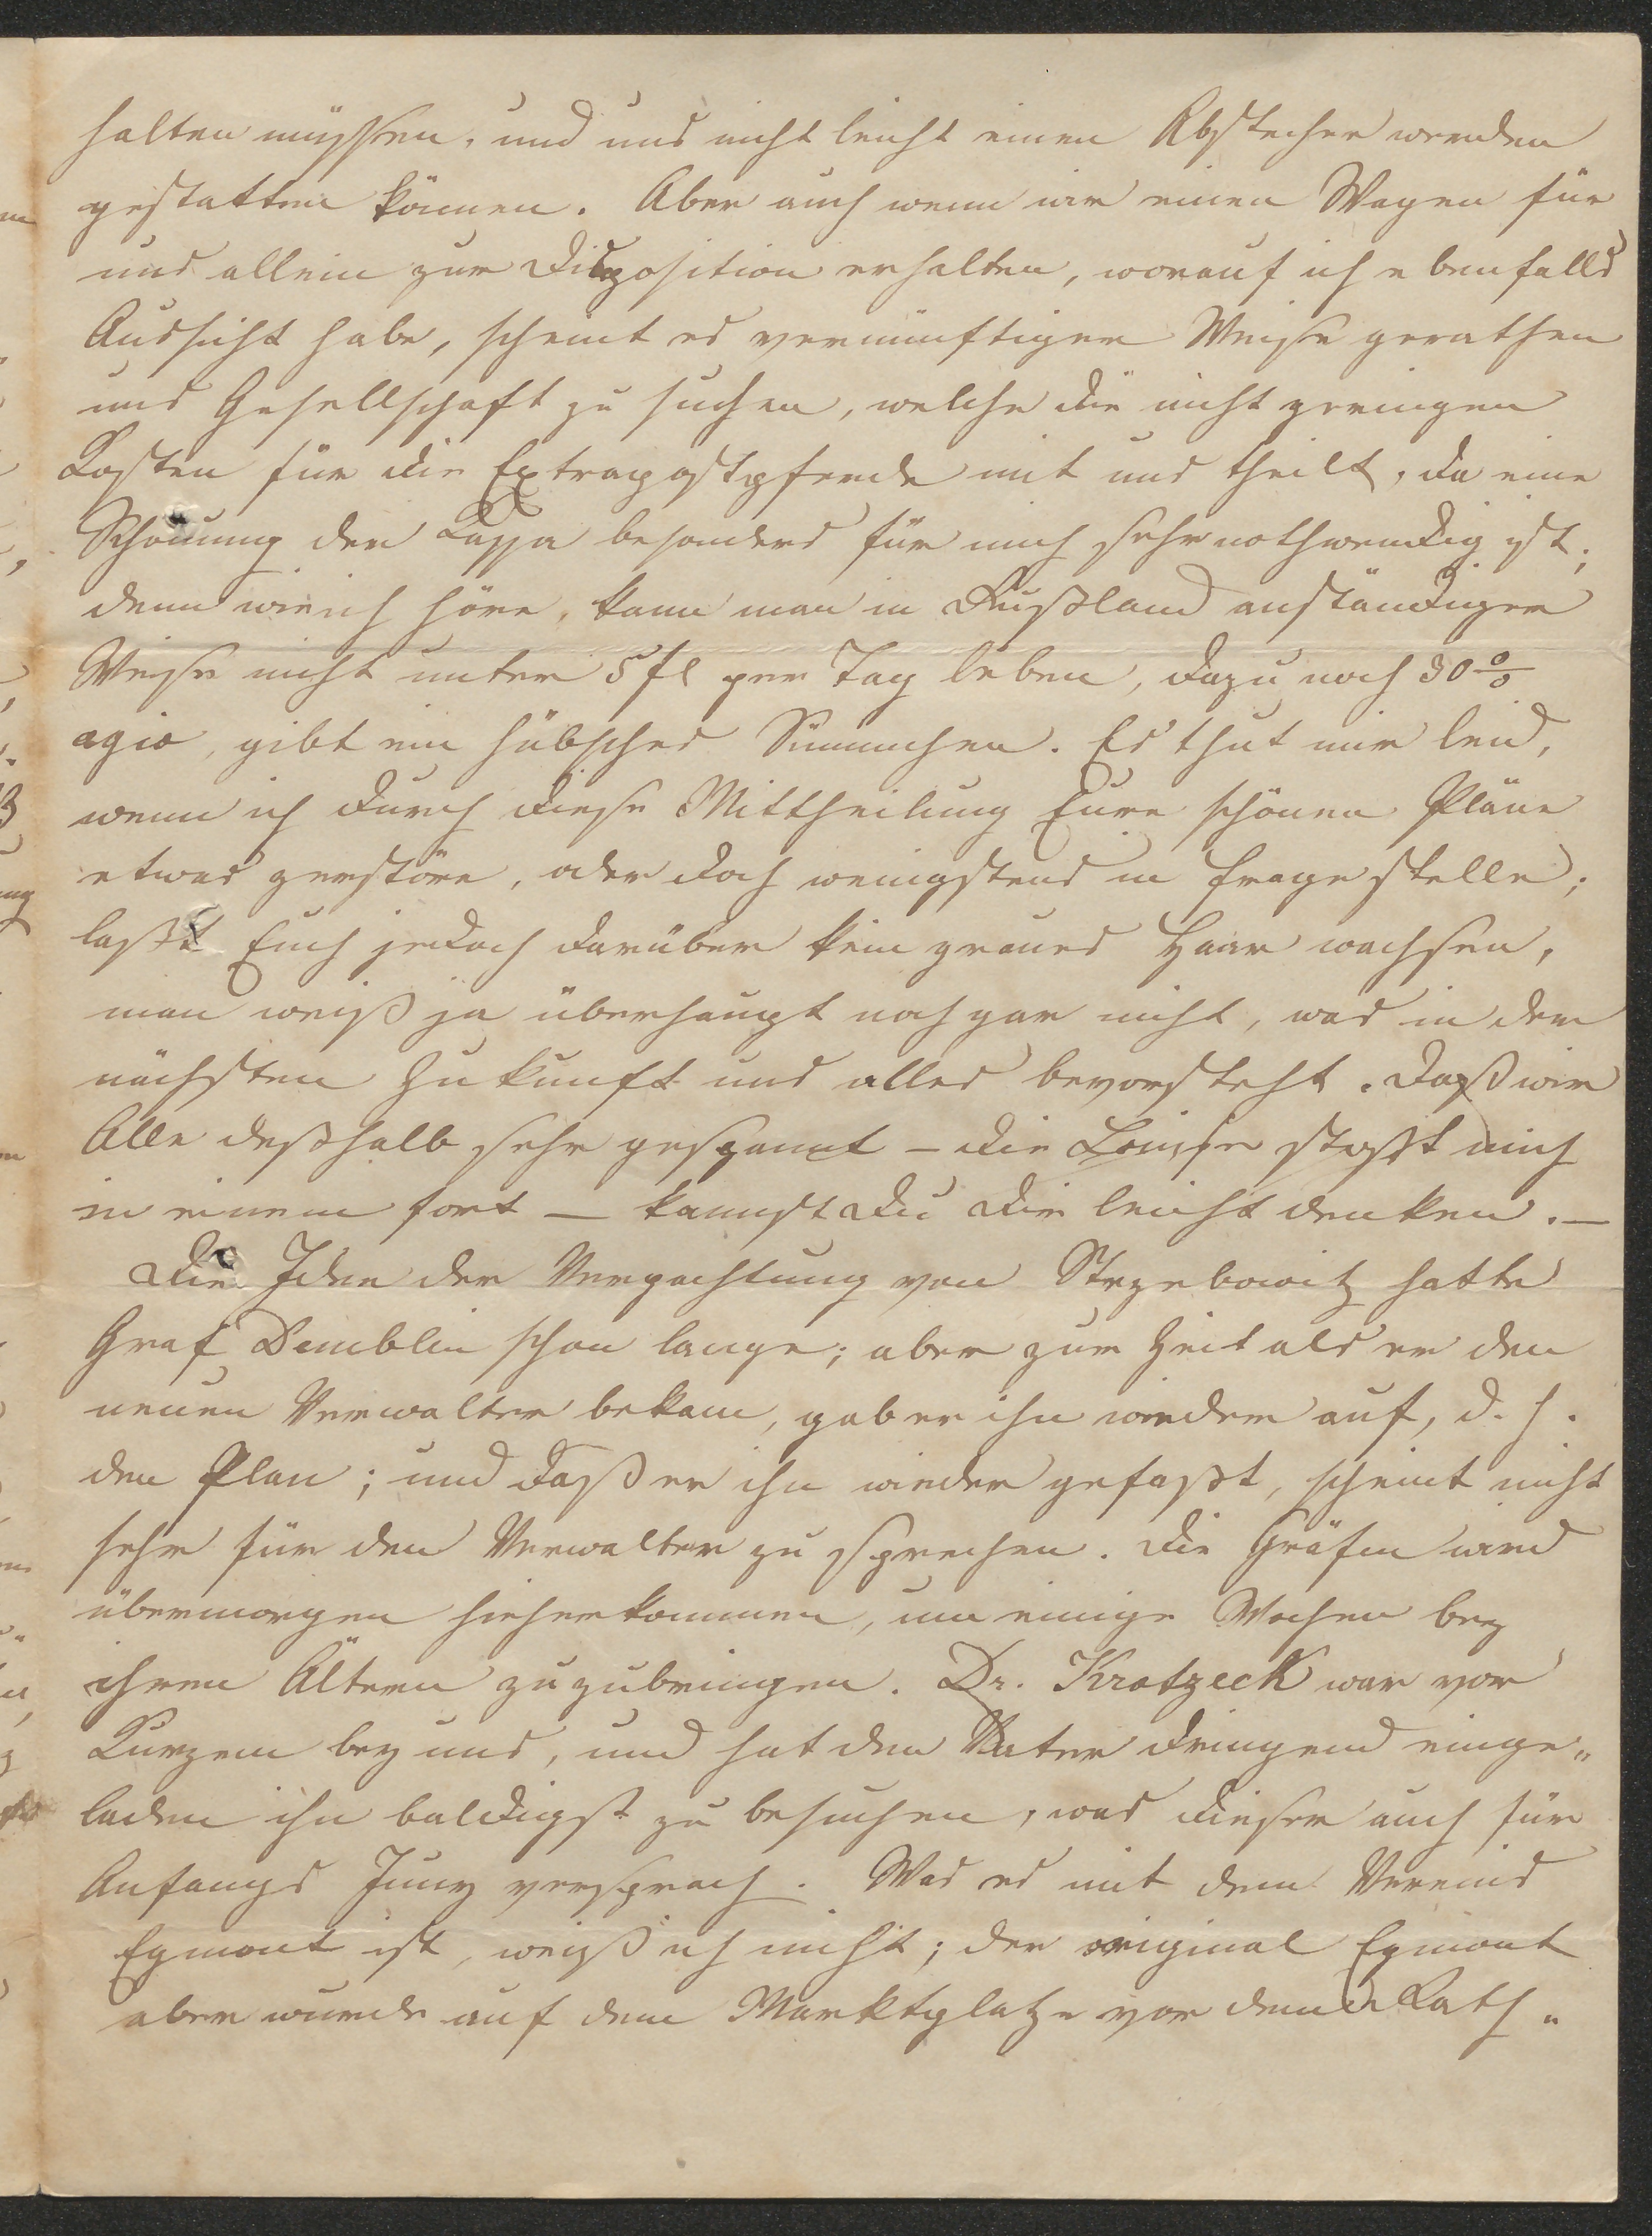 halten müssen, und uns nicht leicht einen Abstecher werden
gestatten können. Aber auch wenn wir einen Wagen für
uns allein zur Disposition erhalten, worauf ich ebenfalls
Aussicht habe, scheint es vernünftiger Weise gerathen
uns Gesellschaft zu suchen, welche die nicht geringen
Kosten für die Extrapostpferde mit uns theilt, da eine
Schonung der Kassa besonders für mich sehr nothwendig ist;
denn wie ich höre, kann man in Rußland anständiger
Weise nicht unter 5 fl per Tag leben, dazu noch 30 %
agio, gibt ein hübsches Sümmchen. Es thut mir leid,
wenn ich durch diese Mittheilung Eure schönen Pläne
etwas zerstöre, oder doch wenigstens in Frage stelle;
laßt Euch jedoch darüber kein graues Haar wachsen,
man weiß ja überhaupt noch gar nicht, was in der
nächsten Zukunft uns alles bevorsteht. Daß wir
Alle deßhalb sehr gespannt – die Louise stoßt mich
in einem fort – kannst Du Dir leicht denken. –
Die Idee der Verpachtung von Strzebowitz hatte
Graf Demblin schon lange; aber zur Zeit als er den
neuen Verwalter bekam, gab er ihn wieder auf, d. h.
den Plan; und daß er ihn wieder gefaßt, scheint nicht
sehr für den Verwalter zu sprechen. Die Gräfin wird
übermorgen hieherkommen, um einige Wochen bey
ihren Ältern zuzubringen. Dr. Krotzeck war vor
Kurzem bey uns, und hat den Vater dringend einge„
laden ihn baldigst zu besuchen, was dieser auch für
Anfangs Juny versprach. Was es mit dem Vereins
Egmont ist, weiß ich nicht; der original Egmont
aber wurde auf dem Marktplatze vor dem Rath„